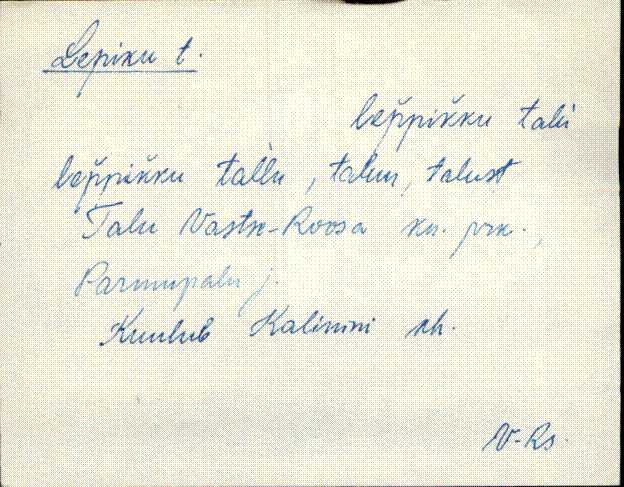 Lepiku t.
lep̆pik̆ku talù
lep̆pik̆ku tal̀lu, talun, talust
Talu Vastse-Roosa kn. prk.,
Parmupalu j.
Kuulub Kalinini kh.
V-Rs.